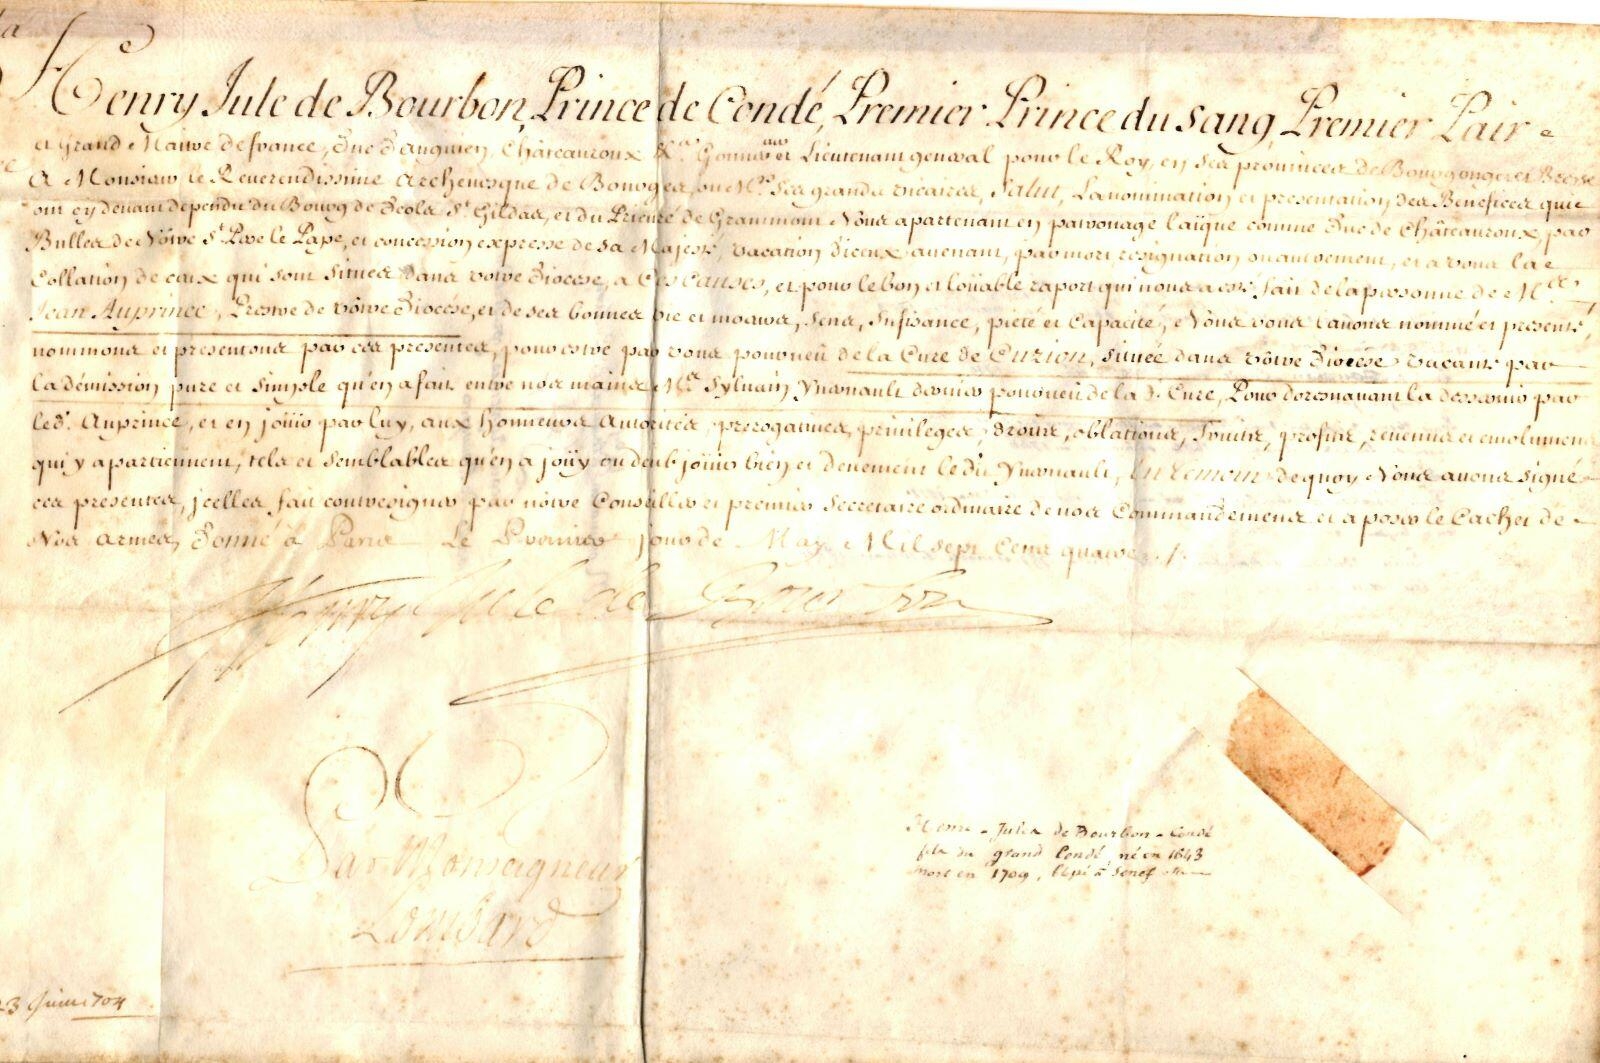 Henry Jule de Bourbon, Prince de Condé, Premier Prince du sang, Premier Pair
et Grand Maitre de france, Duc D'anguien, Châteauroux &.a Gouverneur et Lieutenant general pour le Roy, en ses provinces de Bourgongne et Bresse
A Monsieur le Reverendissime Archevesque de Bourges, ou Mrs. ses grands vicaires, Salut, La nomination et presentation des Benefices qui
ont cy devant dependu du Bourg de Deols St. Gildas, et du Prieuré de Grammont Nous apartenant en patronage laïque comme Duc de Châteauroux, par
Bulles de Nôtre St. Pere le Pape, et concession expresse de sa Majesté, vacation d'iceux avenant, par mort, resignation ou autrement, et a vous la
Collation de ceux qui sont situes dans vôtre Diocese, a Ces causes, et pour le bon et loüable raport qui nous a esté fait de la personne de Mre.
Jean Auprince, Prestre de vôtre Diocése, et de ses bonnes vie et moeurs, sens, sufisance, pieté et capacité, Nous vous l'avons nommé et presenté,
nommons et presentons par ces presentes, pour estre par vous pourveü de la Cure de Cuzion, située dans vôtre Diocése vacante par
la démission pure et simple qu'en a fait entre nos mains Mre. Sylvain Yvernault dernier pourveü de la d. Cure, Pour doresnavant la desservir par
led. Auprince, et en joüir par luy, aux honneurs autorités, prerogatives, privileges, droits, oblations, fruits, profits, revenus et emolumens
qui y apartiennent, tels et semblables qu'en a joüy ou deub joüir bien et deuement le dit Yvernault, En temoin de quoy Nous avons signé
ces presentes, jcelles fait contresigner par nôtre Conseiller et premier Secretaire ordinaire de nos Commandemens et aposer le Cachet de
Nos armes, Donné à Paris Le Premier jour de May Mil sept Cens quatre ./.
Henry Jule de Bourbon
Par Monseigneur
Lombard
Henri - Jules de Bourbon - Condé
fils du grand Condé, né en 1643
mort en 1709,
23 Juin 1704